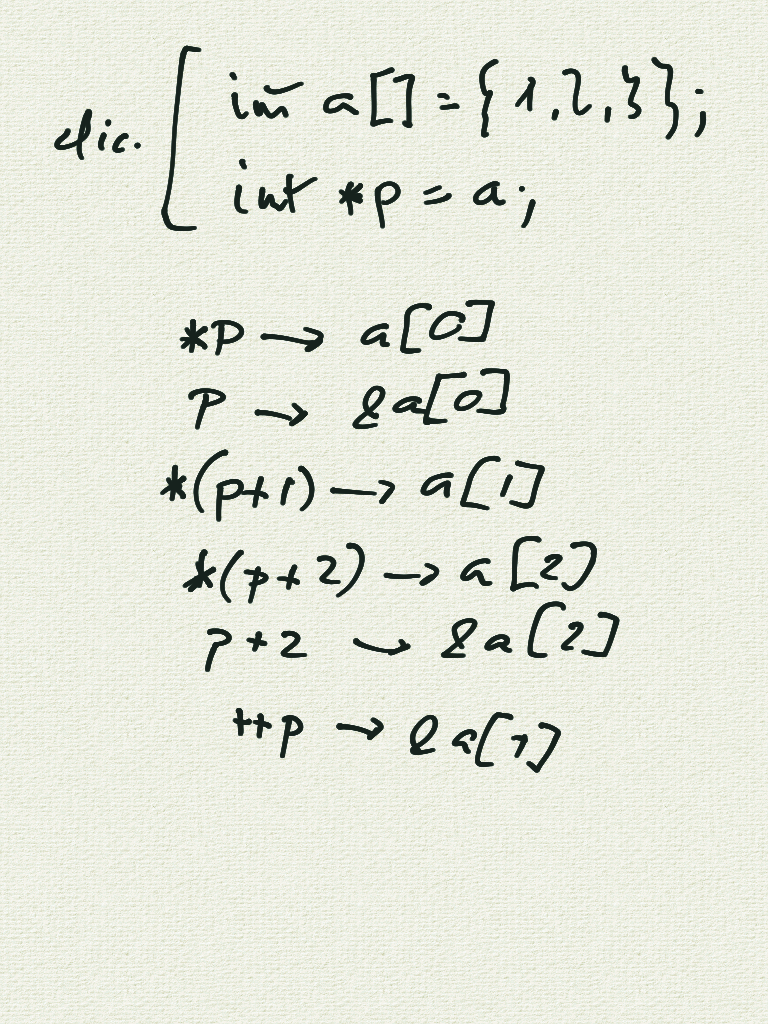 dic. [ int a[] = {1,2,3};
int *p = a;
*p → a[0]
p → &a[0]
*(p+1) → a[1]
*(p+2) → a[2]
p+2 → &a[2]
++p → &a[1]